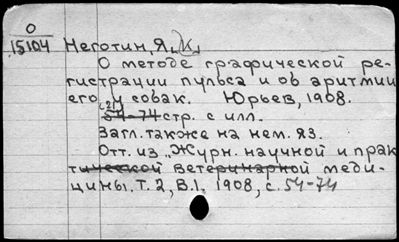 О
15104
Неготин, Я. К.
О методе графической ре-
гистрации пульса и об аритмии
его у собак. Юрьев, 1908.
(21)
54-74 стр. с илл.
Загл. также на нем. яз.
Отт. из "Журн. научной и прак
тической ветеринарной меди-
цины. Т. 2, В.1. 1908, с. 54-74